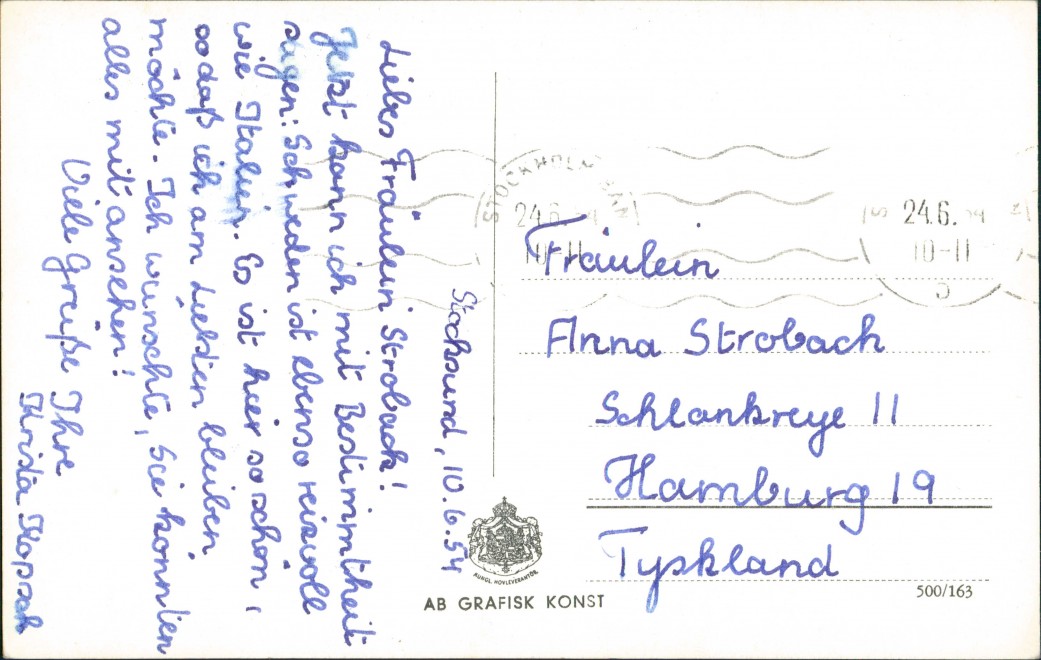 Stocksund, 10.6.54
Liebes Fräulein Strobach!
Jetzt kann ich mit Bestimmtheit
sagen: Schweden ist ebenso reizvoll
wie Italien. Es ist hier so schön,
sodaß ich am liebsten bleiben
möchte. Ich wünschte, Sie könnten
alles mit ansehen!
Viele Grüße Ihre
Krista Kopsch
STOCKHOLM BAN
24.6.
10-11
24.6.
10-11
Fräulein
Anna Strobach
Schlankreye 11
Hamburg 19
Tyskland
KUNGL. HOVLEVERANTÖR
AB GRAFISK KONST
500/163